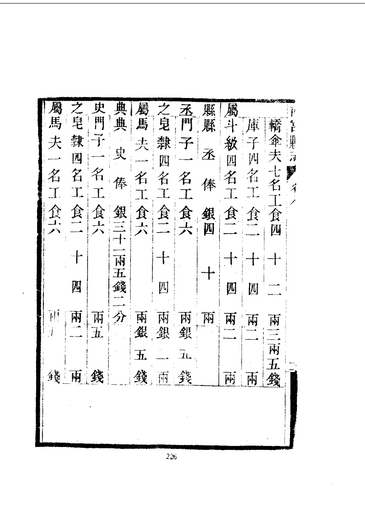 轎傘夫七名工食四十二兩三兩五錢
庫子四名工食二十四兩二兩
屬斗級四名工食二十四兩二兩
縣縣丞俸銀四十兩
丞門子一名工食六兩銀五錢
之皂隸四名工食二十四兩銀一兩
屬馬夫一名工食六兩銀五錢
典典史俸銀三十一兩五錢二分
史門子一名工食六兩五錢
之皂隸四名工食二十四兩二兩
屬馬夫一名工食六兩錢
226